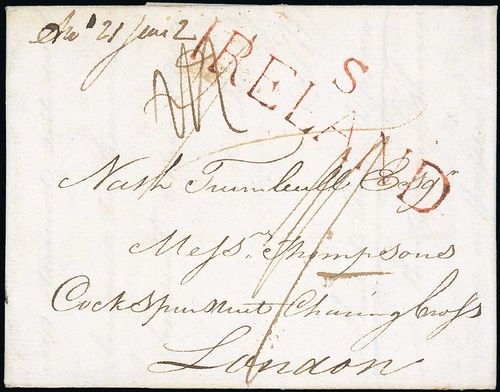 21 June 2
IRELAND
S
Nath Turnbull Esqr
Messrs Thompsons
Cockspur Street Charing Cross
London